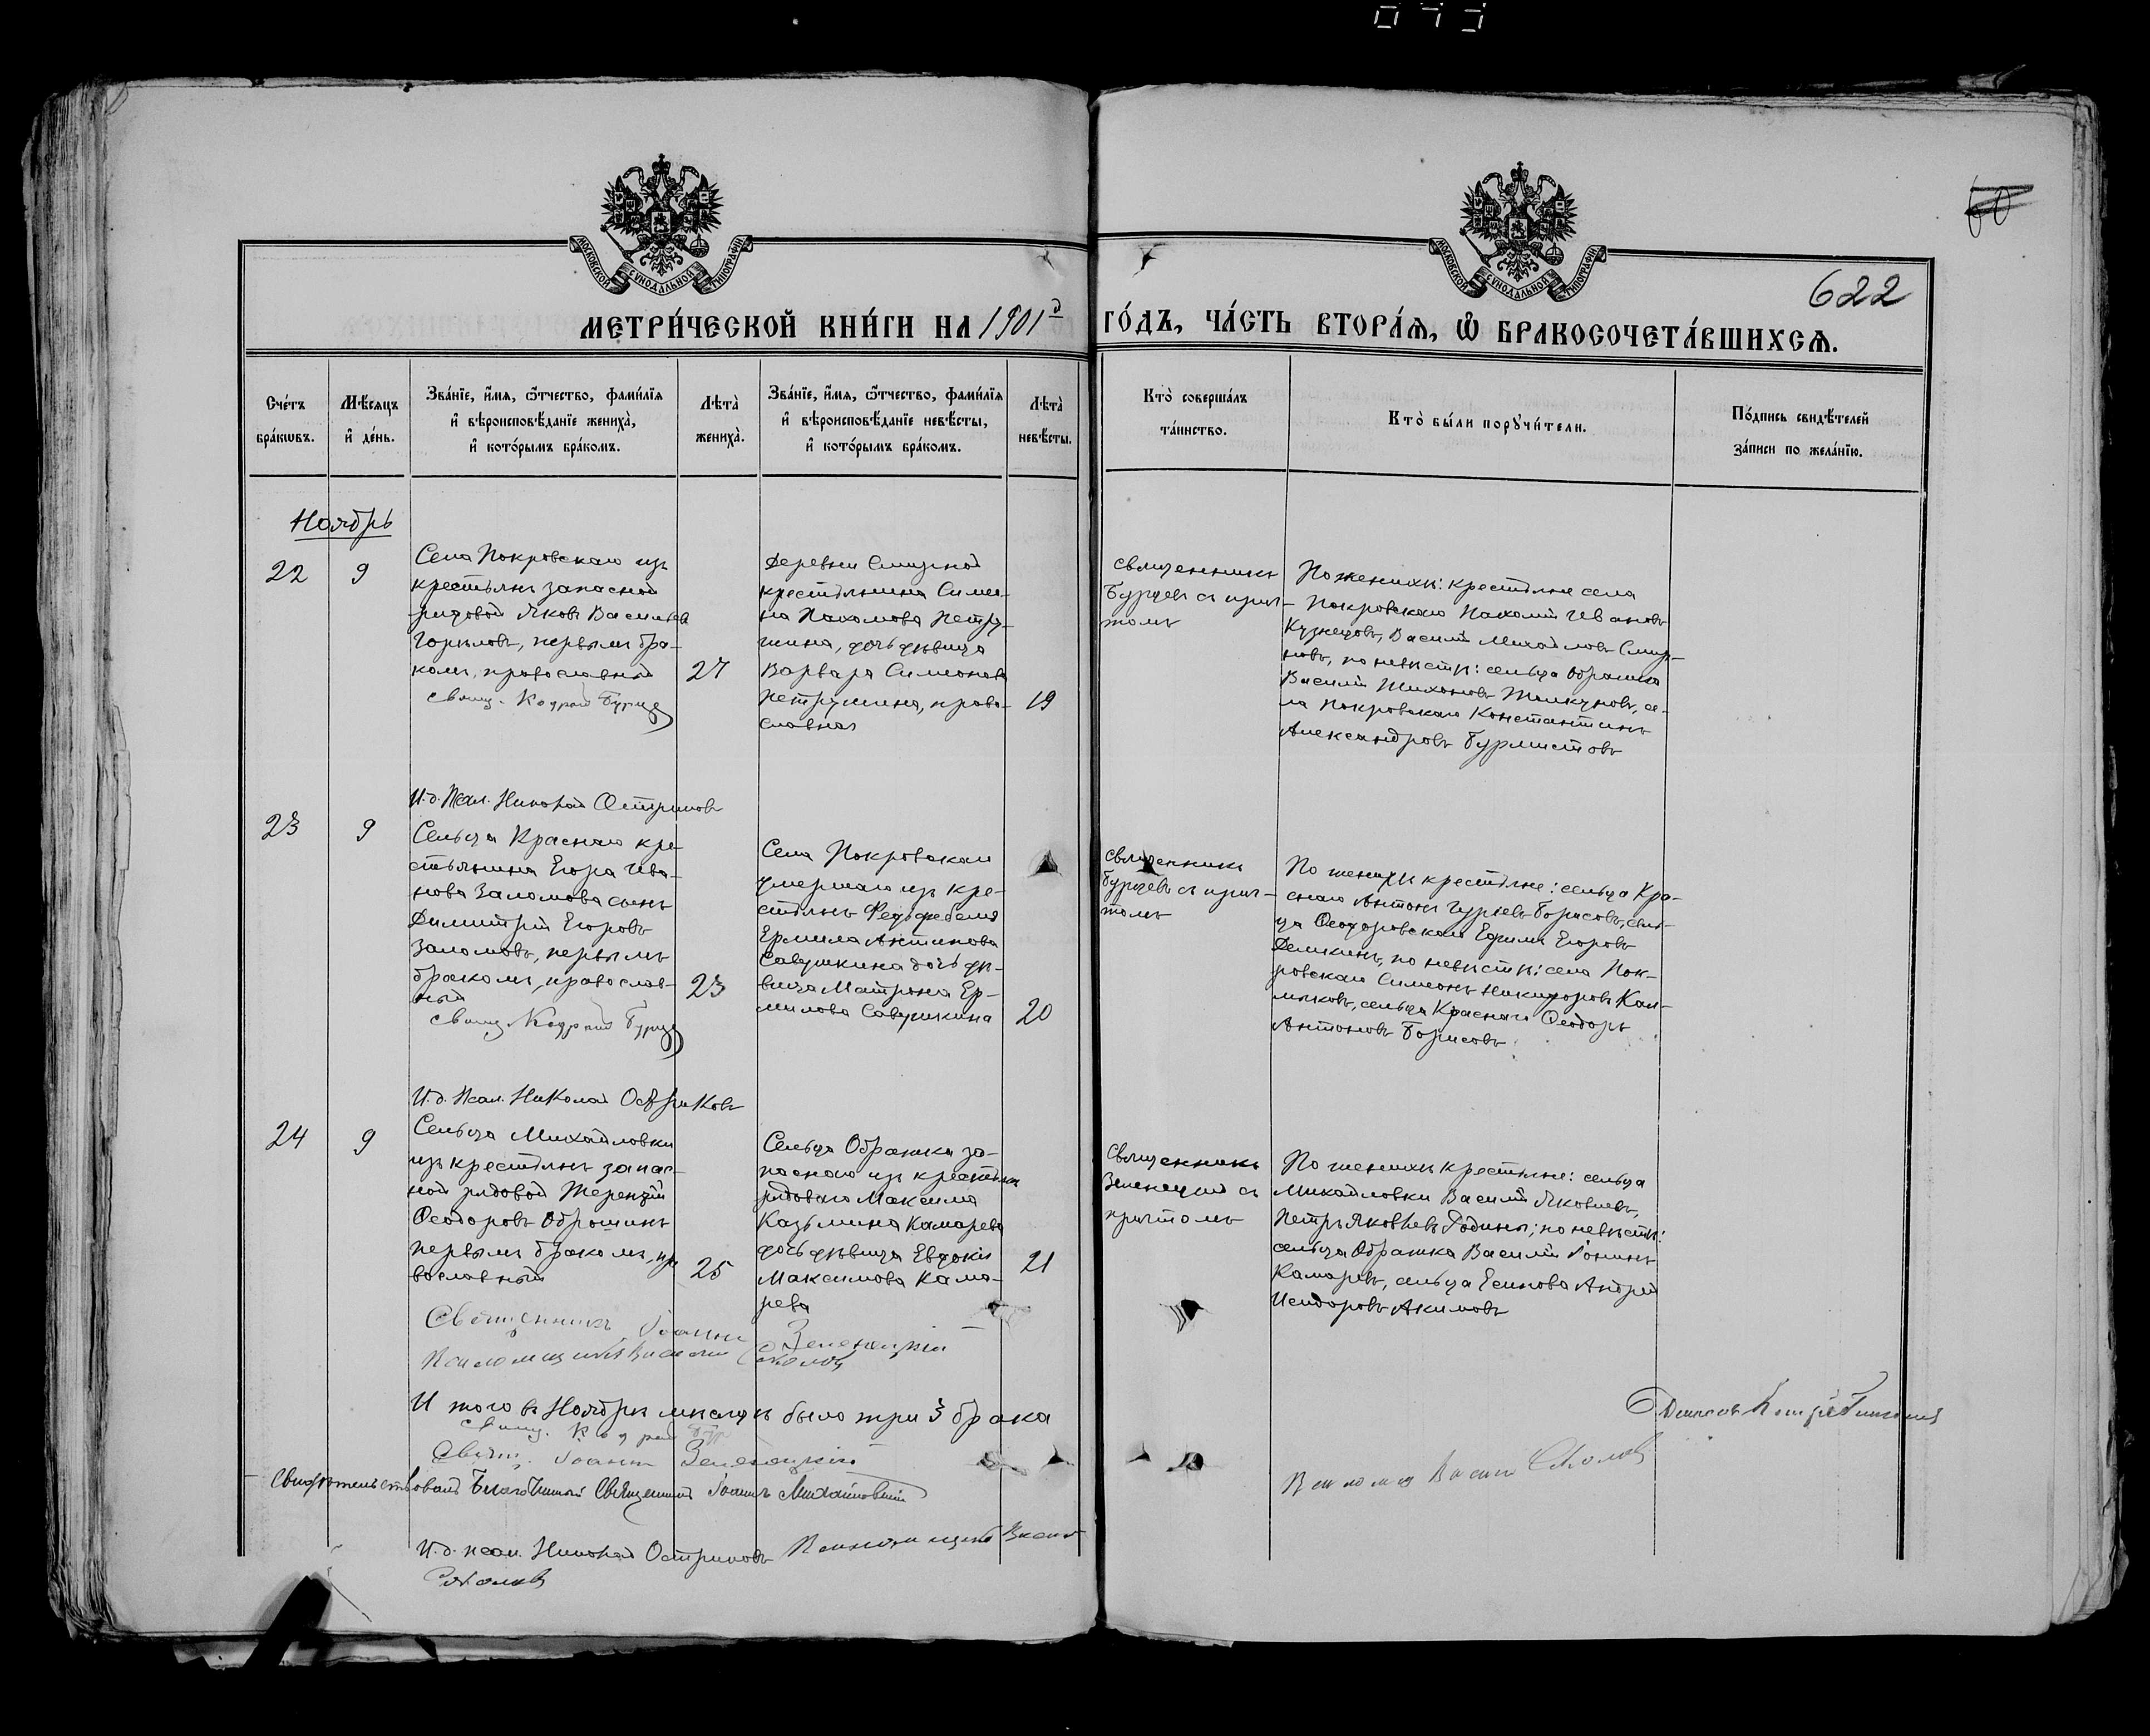 622
МОСКОВСКОЙ СУНОДАЛЬНОЙ ТИПОГРАФІИ
МОСКОВСКОЙ СУНОДАЛЬНОЙ ТИПОГРАФІИ
МЕТРИ́ЧЕСКОЙ КНИ́ГИ НА 1901 ГО́ДЪ, ЧА́СТЬ ВТОРА́Я, Ѽ БРАКОСОЧЕТА́ВШИХСЯ.
Сче́тъ
бра́кѡвъ.
Мѣ́сяцъ
и҆ де́нь.
Зва́нїе, и҆́мя, ѻ҆́тчество, фами́лїя
и҆ вѣроисповѣ́данїе жениха̀,
и҆ кото́рымъ бра́комъ.
Лѣта̀
жениха̀.
Зва́нїе, и҆́мя, ѻ҆́тчество, фами́лїя
и҆ вѣроисповѣ́данїе невѣ́сты,
и҆ кото́рымъ бра́комъ.
Лѣта̀
невѣ́сты.
Кто̀ соверша́лъ
та́инство.
Кто̀ бы́ли порꙋчи́тели.
По́дпись свидѣ́телей
за́писи по жела́нїю.
Ноябрь
22
9
Села Покровскаго изъ
крестьянъ запасной
рядовой Яковъ Васильевъ
первымъ бра-
комъ, православный
свящ.
27
Деревни
крестьянина Симео-
на Пахомова Петру-
шина, дочь дѣвица
Варвара Симеонова
Петрушина, право-
славная
19
священникъ
Бурцевъ съ прич-
томъ
По женихѣ: крестьяне села
Покровскаго Пахомій Ивановъ
Кузнецовъ, Василій Михайловъ Смир-
новъ, по невѣстѣ: сельца Обрашка
Василій Тихоновъ се-
ла Покровскаго Константинъ
Александровъ Бурмистовъ
И. д. Псал. Николай Остриковъ
23
9
Сельца Краснаго кре-
стьянина Егора Ива-
нова Заломова сынъ
Димитрій Егоровъ
Заломовъ, первымъ
бракомъ, православ-
ный
свящ.
23
Села Покровскаго
умершаго изъ кре-
стьянъ фельдфебеля
Ермила Антипова
Савушкина дочь дѣ-
вица Матрона Ер-
милова Савушкина
20
священникъ
Бурцевъ съ прич-
томъ
По женихѣ крестьяне: сельца Кра-
снаго Антонъ Гурьевъ Борисовъ, сель-
ца Ѳеодоровскаго Ефимъ Егоровъ
Демкинъ, по невѣстѣ: села Пок-
ровскаго Симеонъ Никифоровъ Кал-
мыковъ, сельца Краснаго Ѳеодоръ
Антоновъ Борисовъ
И. д. Псал. Николай Остриковъ
24
9
Сельца Михайловки
изъ крестьянъ запас-
ной рядовой Терентій
Ѳеодоровъ Оброшинъ
первымъ бракомъ, пра
вославный
25
Сельца Обрашка за-
паснаго изъ крестьянъ
рядоваго Максима
Казьмина Камарева
дочь дѣвица Евдокія
Максимова Кама-
рева
21
Священникъ
Зеленецкій съ
причтомъ
По женихѣ крестьяне: сельца
Михайловки Василій Яковлевъ,
Петръ Яковлевъ Родины; по невѣстѣ:
сельца Обрашка Василій
Камаревъ, сельца Есипова Андрей
Исидоровъ Акимовъ
Священникъ Іоаннъ Зеленецкій
Псаломщикъ Василій Соколовъ
И того въ Ноябрѣ мѣсяцѣ было три 3 брака
свящ.
Свящ. Іоаннъ Зеленецкій
Діаконъ Петръ
Псаломщ Васил Соколовъ
Свидѣтельствовалъ Благочинный Священникъ Іоаннъ Михайловскій
И. д. псал. Николай Остриковъ Псаломщикъ Васил
Соколовъ